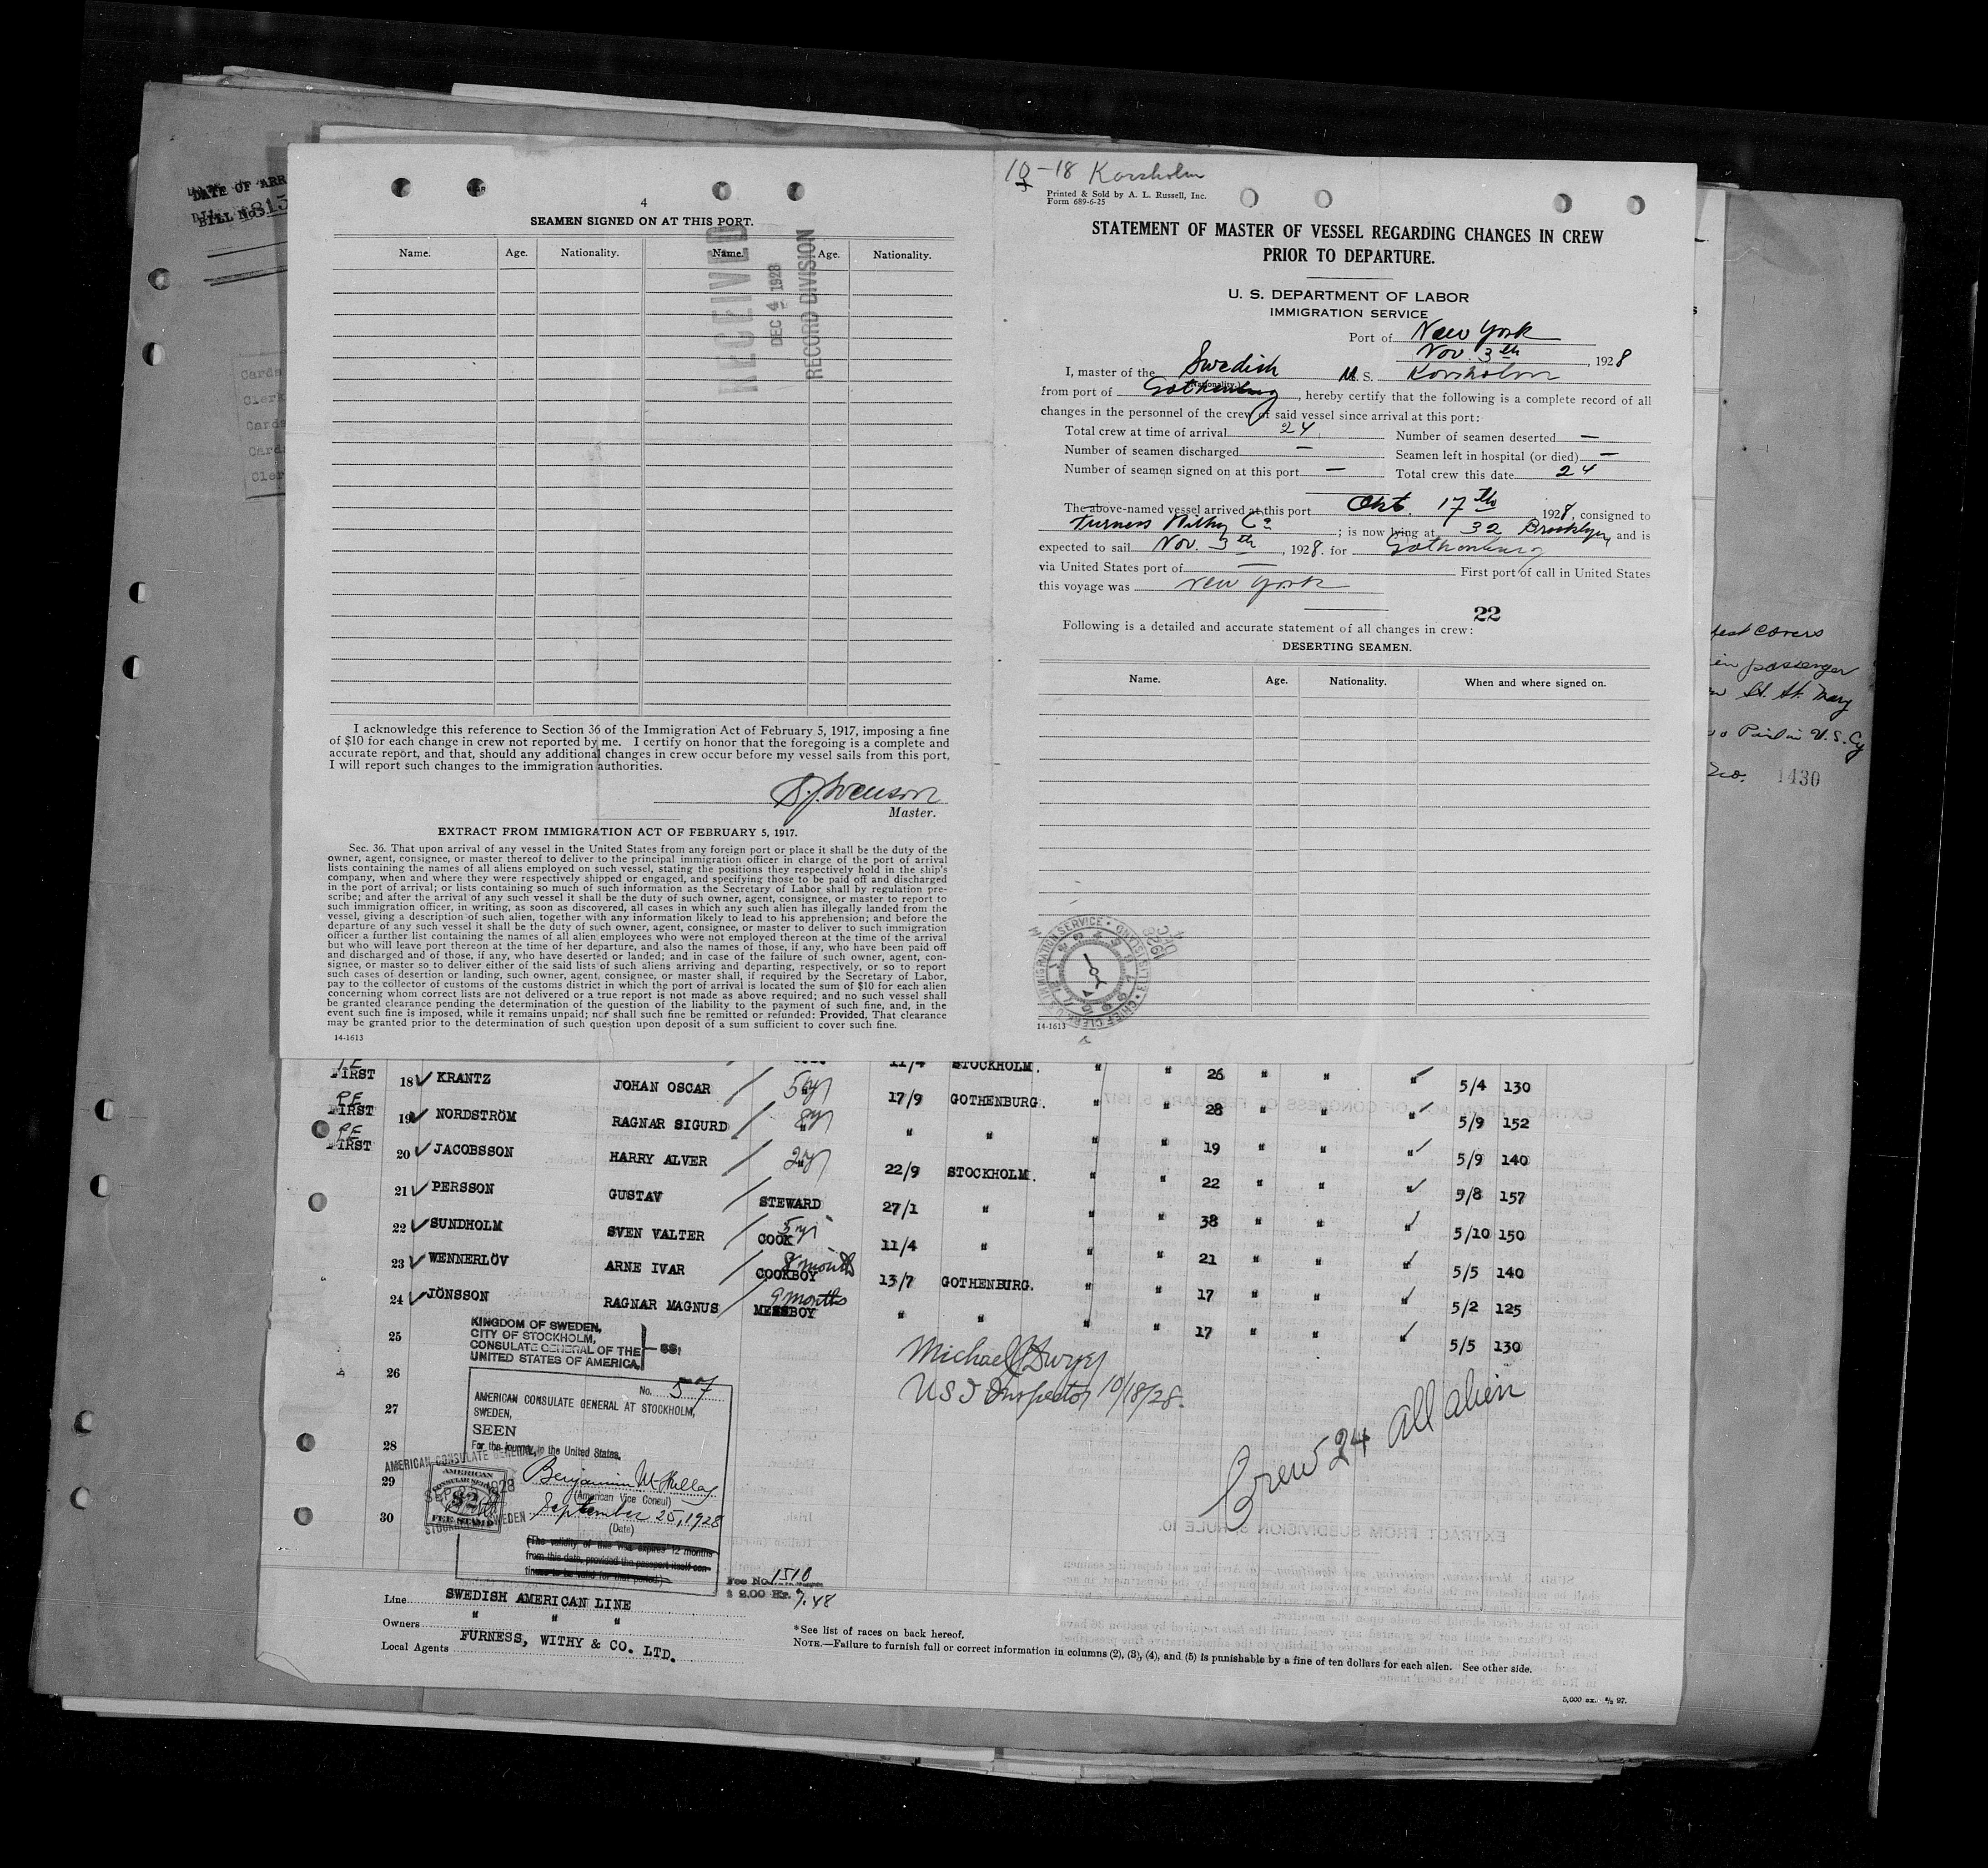 DATE OF ARR
BILL No.
Cards
Clerk
Cards
Cards
Cler
4
SEAMEN SIGNED ON AT THIS PORT.
Name. Age. Nationality. Name. Age. Nationality.
RECEIVED
DEC 4 1928
RECORD DIVISION
I acknowledge this reference to Section 36 of the Immigration Act of February 5, 1917, imposing a fine
of $10 for each change in crew not reported by me. I certify on honor that the foregoing is a complete and
accurate report, and that, should any additional changes in crew occur before my vessel sails from this port,
I will report such changes to the immigration authorities.
Master.
EXTRACT FROM IMMIGRATION ACT OF FEBRUARY 5, 1917.
Sec. 36. That upon arrival of any vessel in the United States from any foreign port or place it shall be the duty of the
owner, agent, consignee, or master thereof to deliver to the principal immigration officer in charge of the port of arrival
lists containing the names of all aliens employed on such vessel, stating the positions they respectively hold in the ship's
company, when and where they were respectively shipped or engaged, and specifying those to be paid off and discharged
in the port of arrival; or lists containing so much of such information as the Secretary of Labor shall by regulation pre-
scribe; and after the arrival of any such vessel it shall be the duty of such owner, agent, consignee, or master to report to
such immigration officer, in writing, as soon as discovered, all cases in which any such alien has illegally landed from the
vessel, giving a description of such alien, together with any information likely to lead to his apprehension; and before the
departure of any such vessel it shall be the duty of such owner, agent, consignee, or master to deliver to such immigration
officer a further list containing the names of all alien employees who were not employed thereon at the time of the arrival
but who will leave port thereon at the time of her departure, and also the names of those, if any, who have been paid off
and discharged and of those, if any, who have deserted or landed; and in case of the failure of such owner, agent, con-
signee, or master so to deliver either of the said lists of such aliens arriving and departing, respectively, or so to report
such cases of desertion or landing, such owner, agent, consignee, or master shall, if required by the Secretary of Labor,
pay to the collector of customs of the customs district in which the port of arrival is located the sum of $10 for each alien
concerning whom correct lists are not delivered or a true report is not made as above required; and no such vessel shall
be granted clearance pending the determination of the question of the liability to the payment of such fine, and, in the
event such fine is imposed, while it remains unpaid; nor shall such fine be remitted or refunded: Provided, That clearance
may be granted prior to the determination of such question upon deposit of a sum sufficient to cover such fine.
14-1613
-18 Korsholm
Printed & Sold by A. L. Russell, Inc.
Form 689-6-25
STATEMENT OF MASTER OF VESSEL REGARDING CHANGES IN CREW
PRIOR TO DEPARTURE.
U. S. DEPARTMENT OF LABOR
IMMIGRATION SERVICE
Port of New York
Nov. 3th, 1928
I, master of the Swedish M. S. Korsholm
(Nationality.)
from port of Gothenburg, hereby certify that the following is a complete record of all
changes in the personnel of the crew of said vessel since arrival at this port:
Total crew at time of arrival 24 Number of seamen deserted —
Number of seamen discharged — Seamen left in hospital (or died) —
Number of seamen signed on at this port — Total crew this date 24
The above-named vessel arrived at this port Okt. 17th 1928, consigned to
Co; is now lying at 32 Brooklyn, and is
expected to sail Nov. 3th, 1928. for Gothenburg
via United States port of — First port of call in United States
this voyage was New York
22
Following is a detailed and accurate statement of all changes in crew:
DESERTING SEAMEN.
Name. Age. Nationality. When and where signed on.
14-1613
fest covers
passenger
St. Mary
1430
11/4 STOCKHOLM.
FIRST 18 KRANTZ JOHAN OSCAR 17/9 GOTHENBURG. " " 26 " " 5/4 130
FIRST 19 NORDSTRÖM RAGNAR SIGURD " " " " 28 " " 5/9 152
FIRST 20 JACOBSSON HARRY ALVER 22/9 STOCKHOLM. " " 19 " " 5/9 140
21 PERSSON GUSTAV STEWARD 27/1 " " " 22 " " 5/8 157
22 SUNDHOLM SVEN VALTER COOK 11/4 " " " 38 " " 5/10 150
23 WENNERLÖV ARNE IVAR 8 months COOKBOY 13/7 GOTHENBURG. " " 21 " " 5/5 140
24 JÖNSSON RAGNAR MAGNUS 9 months MESSBOY " " " " 17 " " 5/2 125
25 " 17 " " 5/5 130
26
27
28
29
30
KINGDOM OF SWEDEN,
CITY OF STOCKHOLM,
CONSULATE GENERAL OF THE
UNITED STATES OF AMERICA.
SS:
No. 57
AMERICAN CONSULATE GENERAL AT STOCKHOLM,
SWEDEN,
SEEN
For the journey to the United States.
(American Vice Consul)
September 25, 1928
(Date)
(The validity of this visa expires 12 months
from this date, provided the passport itself con-
tinues to be valid for that period.)
AMERICAN
CONSULAR SERVICE
$2
FEE STAMP
Fee No. 1518
$ 2.00 Kr. 7.48
Michael J Dwyer
USI Inspector 10/18/28.
Crew 24 all alien
Line SWEDISH AMERICAN LINE
Owners " " "
Local Agents FURNESS, WITHY & CO. LTD.
*See list of races on back hereof.
NOTE.—Failure to furnish full or correct information in columns (2), (3), (4), and (5) is punishable by a fine of ten dollars for each alien. See other side.